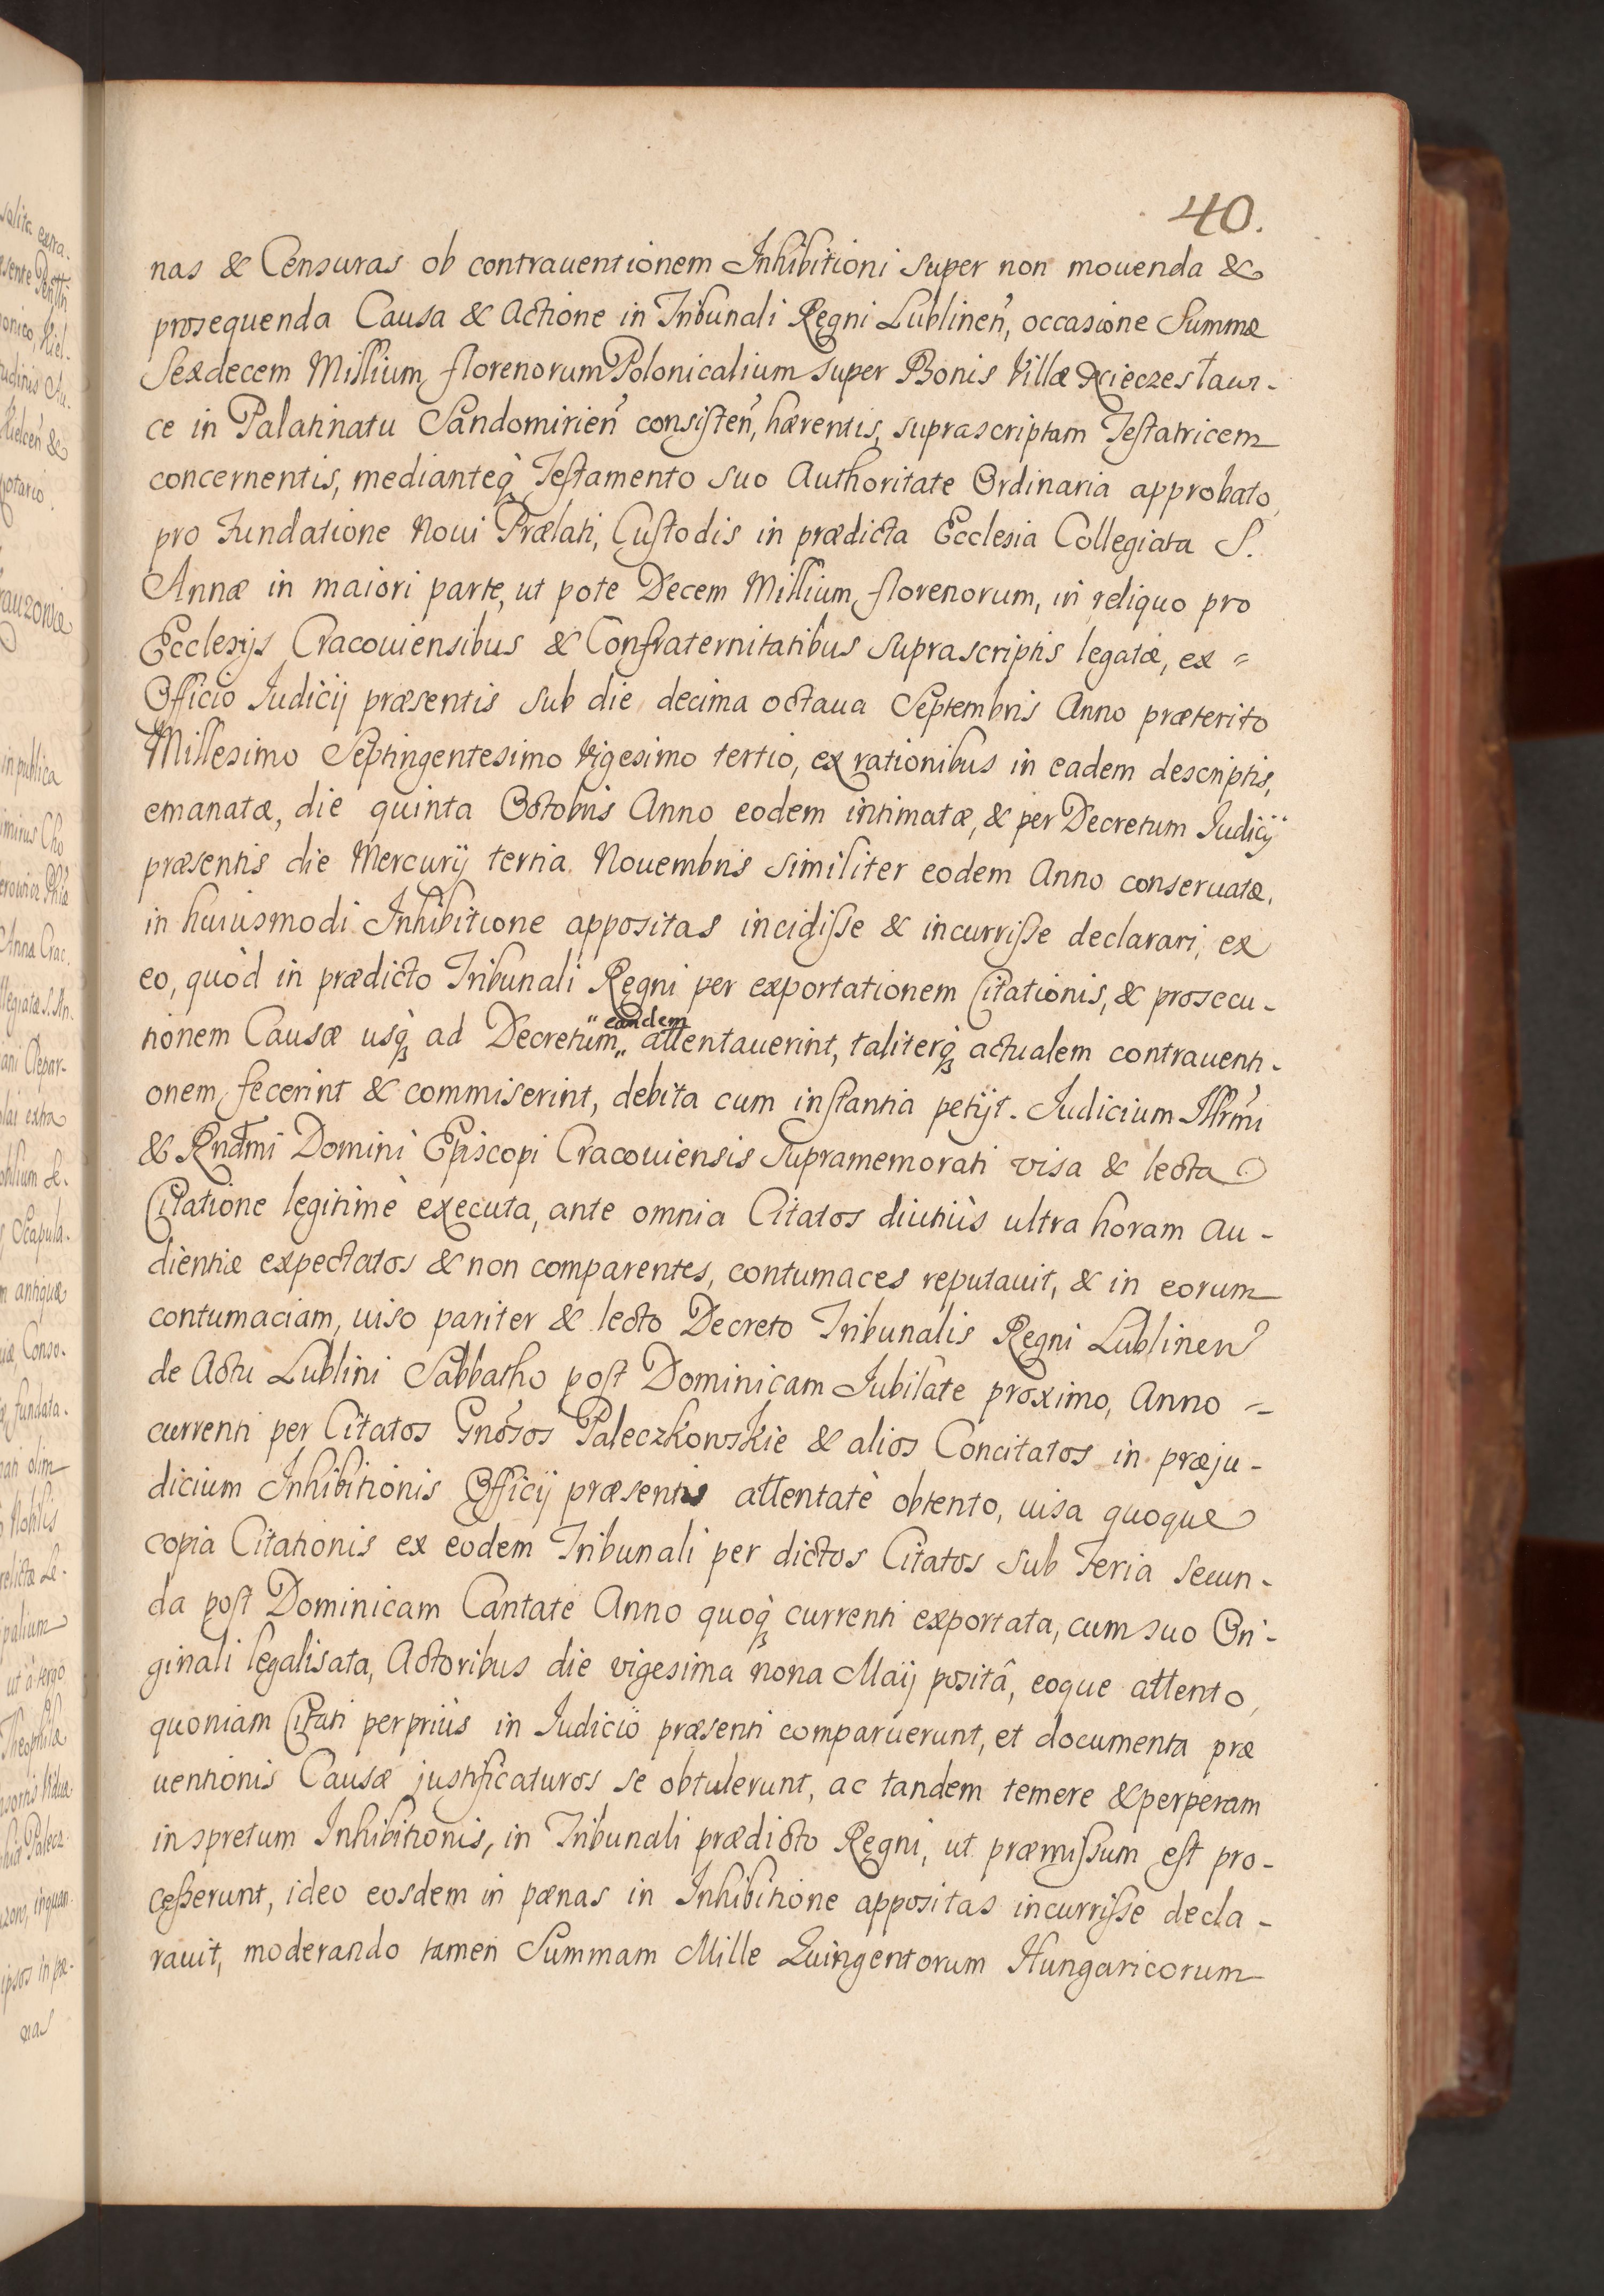 40.
nas & Censuras ob contrauentionem Inhibitioni super non mouenda &
prosequenda Causa & Actione in Tribunali Regni Lublinen̄, occasione Summæ
Sexdecem Millium florenorum Polonicalium super Bonis Villæ
ce in Palatinatu Sandomirien̄ consisten̄, hærentis, suprascriptam Testatricem
concernentis, medianteq̀ Testamento suo Authoritate Ordinaria approbato,
pro Fundatione Noui Prælati, Custodis in prædicta Ecclesia Collegiata S.
Annæ in maiori parte, ut pote Decem Millium florenorum, in reliquo pro
Ecclesijs Cracouiensibus & Confraternitatibus suprascriptis legatæ, ex =
Officio Iudicij præsentis sub die decima octaua Septembris Anno præterito
Millesimo Septingentesimo Vigesimo tertio, ex rationibus in eadem descriptis,
emanatæ, die quinta Octobris Anno eodem intimatæ, & per Decretum Iudicij
præsentis die Mercurij tertia Nouembris similiter eodem Anno conseruatæ,
in huiusmodi Inhibitione appositas incidisse & incurrisse declarari, ex
eo, quòd in prædicto Tribunali Regni per exportationem Citationis, & prosecu-
eandem
tionem Causæ usq̀ ad Decretum attentauerint, taliterq̀ actualem contrauenti-
onem fecerint & commiserint, debita cum instantia petijt. Iudicium Illrm̄i
& Rnd̄mi Domini Episcopi Cracouiensis supramemorati visa & lecta
Citatione legitimè executa, ante omnia Citatos diutiùs ultra horam Au-
dientiæ expectatos & non comparentes, contumaces reputauit, & in eorum
contumaciam, uiso pariter & lecto Decreto Tribunalis Regni Lublinen̄
de Actu Lublini Sabbatho post Dominicam Iubilate proximo, Anno =
currenti per Citatos Gn̄osos Paleczkowskie & alios Concitatos in præju-
dicium Inhibitionis Officij præsentis attentatè obtento, uisa quoque
copia Citationis ex eodem Tribunali per dictos Citatos sub Feria secun-
da post Dominicam Cantate Anno quoq̀ currenti exportata, cum suo Ori-
ginali legalisata, Actoribus die vigesima nona Maij positâ, eoque attento,
quoniam Citati perpriùs in Iudicio præsenti comparuerunt, et documenta præ
uentionis Causæ justificaturos se obtulerunt, ac tandem temere & perperam
in spretum Inhibitionis, in Tribunali prædicto Regni, ut præmissum est pro-
cesserunt, ideo eosdem in pœnas in Inhibitione appositas incurrisse decla-
rauit, moderando tamen Summam Mille Quingentorum Hungaricorum